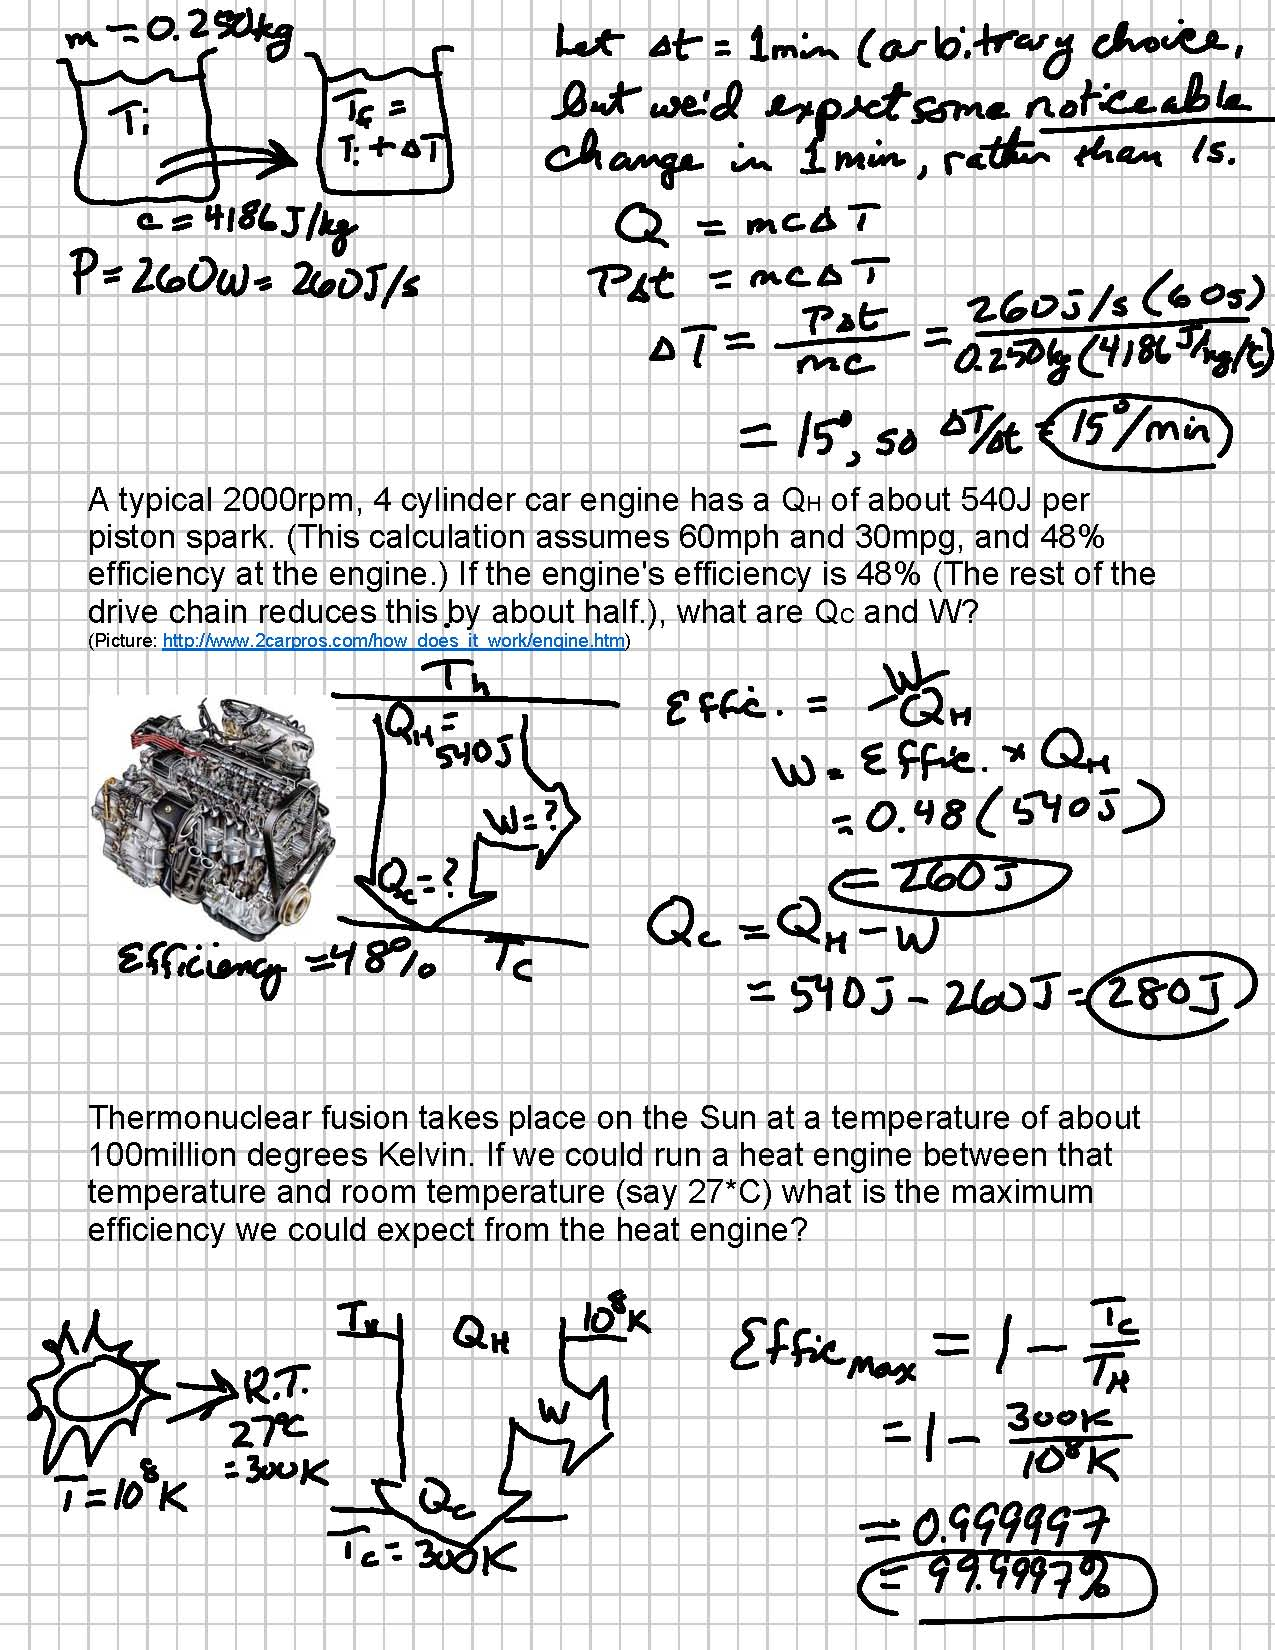 m = 0.250kg
Ti
Tf =
Ti + ΔT
c = 4186 J/kg
P = 260W = 260J/s
Let Δt = 1min (arbitrary choice,
but we'd expect some noticeable
change in 1min, rather than 1s.
Q = mcΔT
PΔt = mcΔT
ΔT = PΔt/mc = 260J/s (60s)/0.250kg (4186 J/kg/°C)
= 15°, so ΔT/Δt = 15°/min
A typical 2000rpm, 4 cylinder car engine has a QH of about 540J per
piston spark. (This calculation assumes 60mph and 30mpg, and 48%
efficiency at the engine.) If the engine's efficiency is 48% (The rest of the
drive chain reduces this by about half.), what are QC and W?
(Picture: http://www.2carpros.com/how_does_it_work/engine.htm)
Th
QH =
540J
W = ?
Qc = ?
Tc
Efficiency = 48%
Effic. = W/QH
W = Effic. * QH
= 0.48 (540J)
= 260J
Qc = QH - W
= 540J - 260J = 280J
Thermonuclear fusion takes place on the Sun at a temperature of about
100million degrees Kelvin. If we could run a heat engine between that
temperature and room temperature (say 27*C) what is the maximum
efficiency we could expect from the heat engine?
T = 10⁸K
R.T.
27°C
= 300K
TH
QH
10⁸K
W
Qc
Tc = 300K
Effic max = 1 - Tc/TH
= 1 - 300K/10⁸K
= 0.999997
= 99.9997%